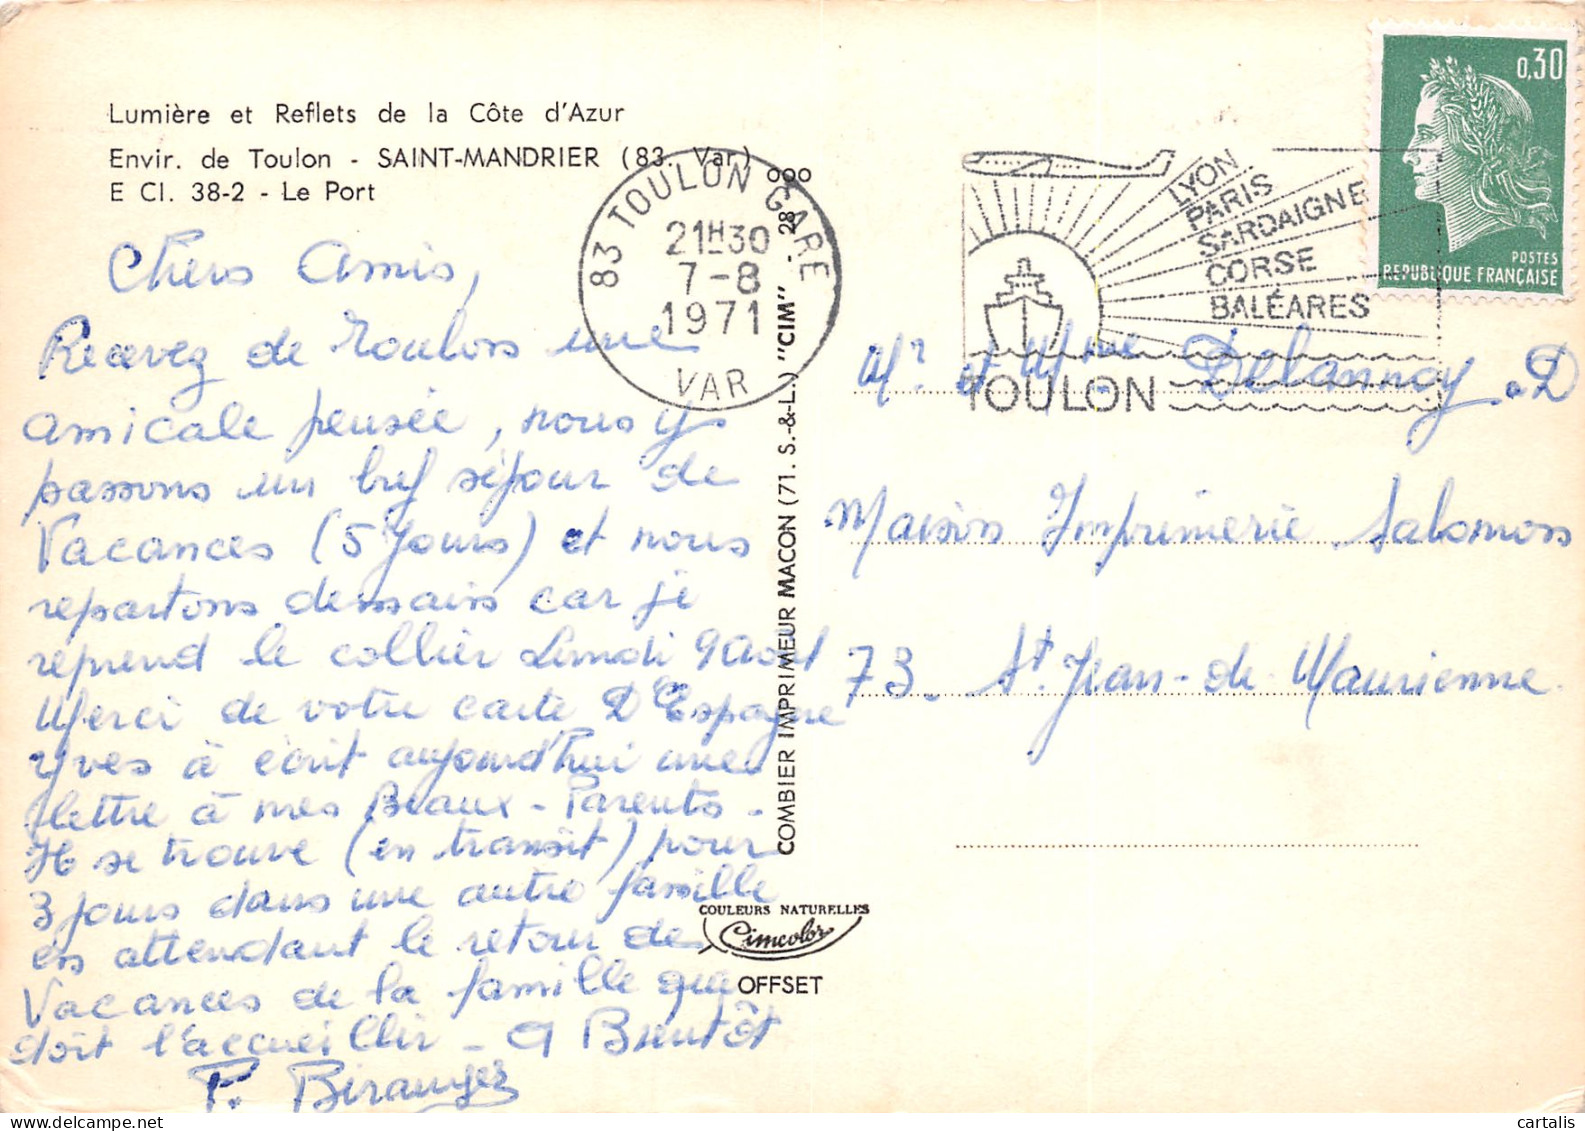 Lumière et Reflets de la Côte d'Azur
Envir. de Toulon - SAINT-MANDRIER (83. Var)
E Cl. 38-2 - Le Port
Chers Amis,
Recevez de Toulon une
amicale pensée, nous y
passons un bref séjour de
Vacances (5 Jours) et nous
repartons demain car je
reprend le collier Lundi 9 Aout
Merci de votre carte D'Espagne
Yves à écrit aujourd'hui une
lettre à mes Beaux-Parents-
Il se trouve (en transit) pour
3 jours dans une autre famille
en attendant le retour de
Vacances de la famille que
doit l'accueillir - A Bientôt
P. Béranger
83 TOULON GARE
21H30
7-8
1971
VAR
COMBIER IMPRIMEUR MACON (71. S.-&-L.) "CIM" - 28
COULEURS NATURELLES
Cimcolor
OFFSET
LYON
PARIS
SARDAIGNE
CORSE
BALÉARES
TOULON
0,30
POSTES
REPUBLIQUE FRANÇAISE
Mr et Mme Delannoy D
Maison Imprimerie Salomon
73. St Jean-de Maurienne.
cartalis